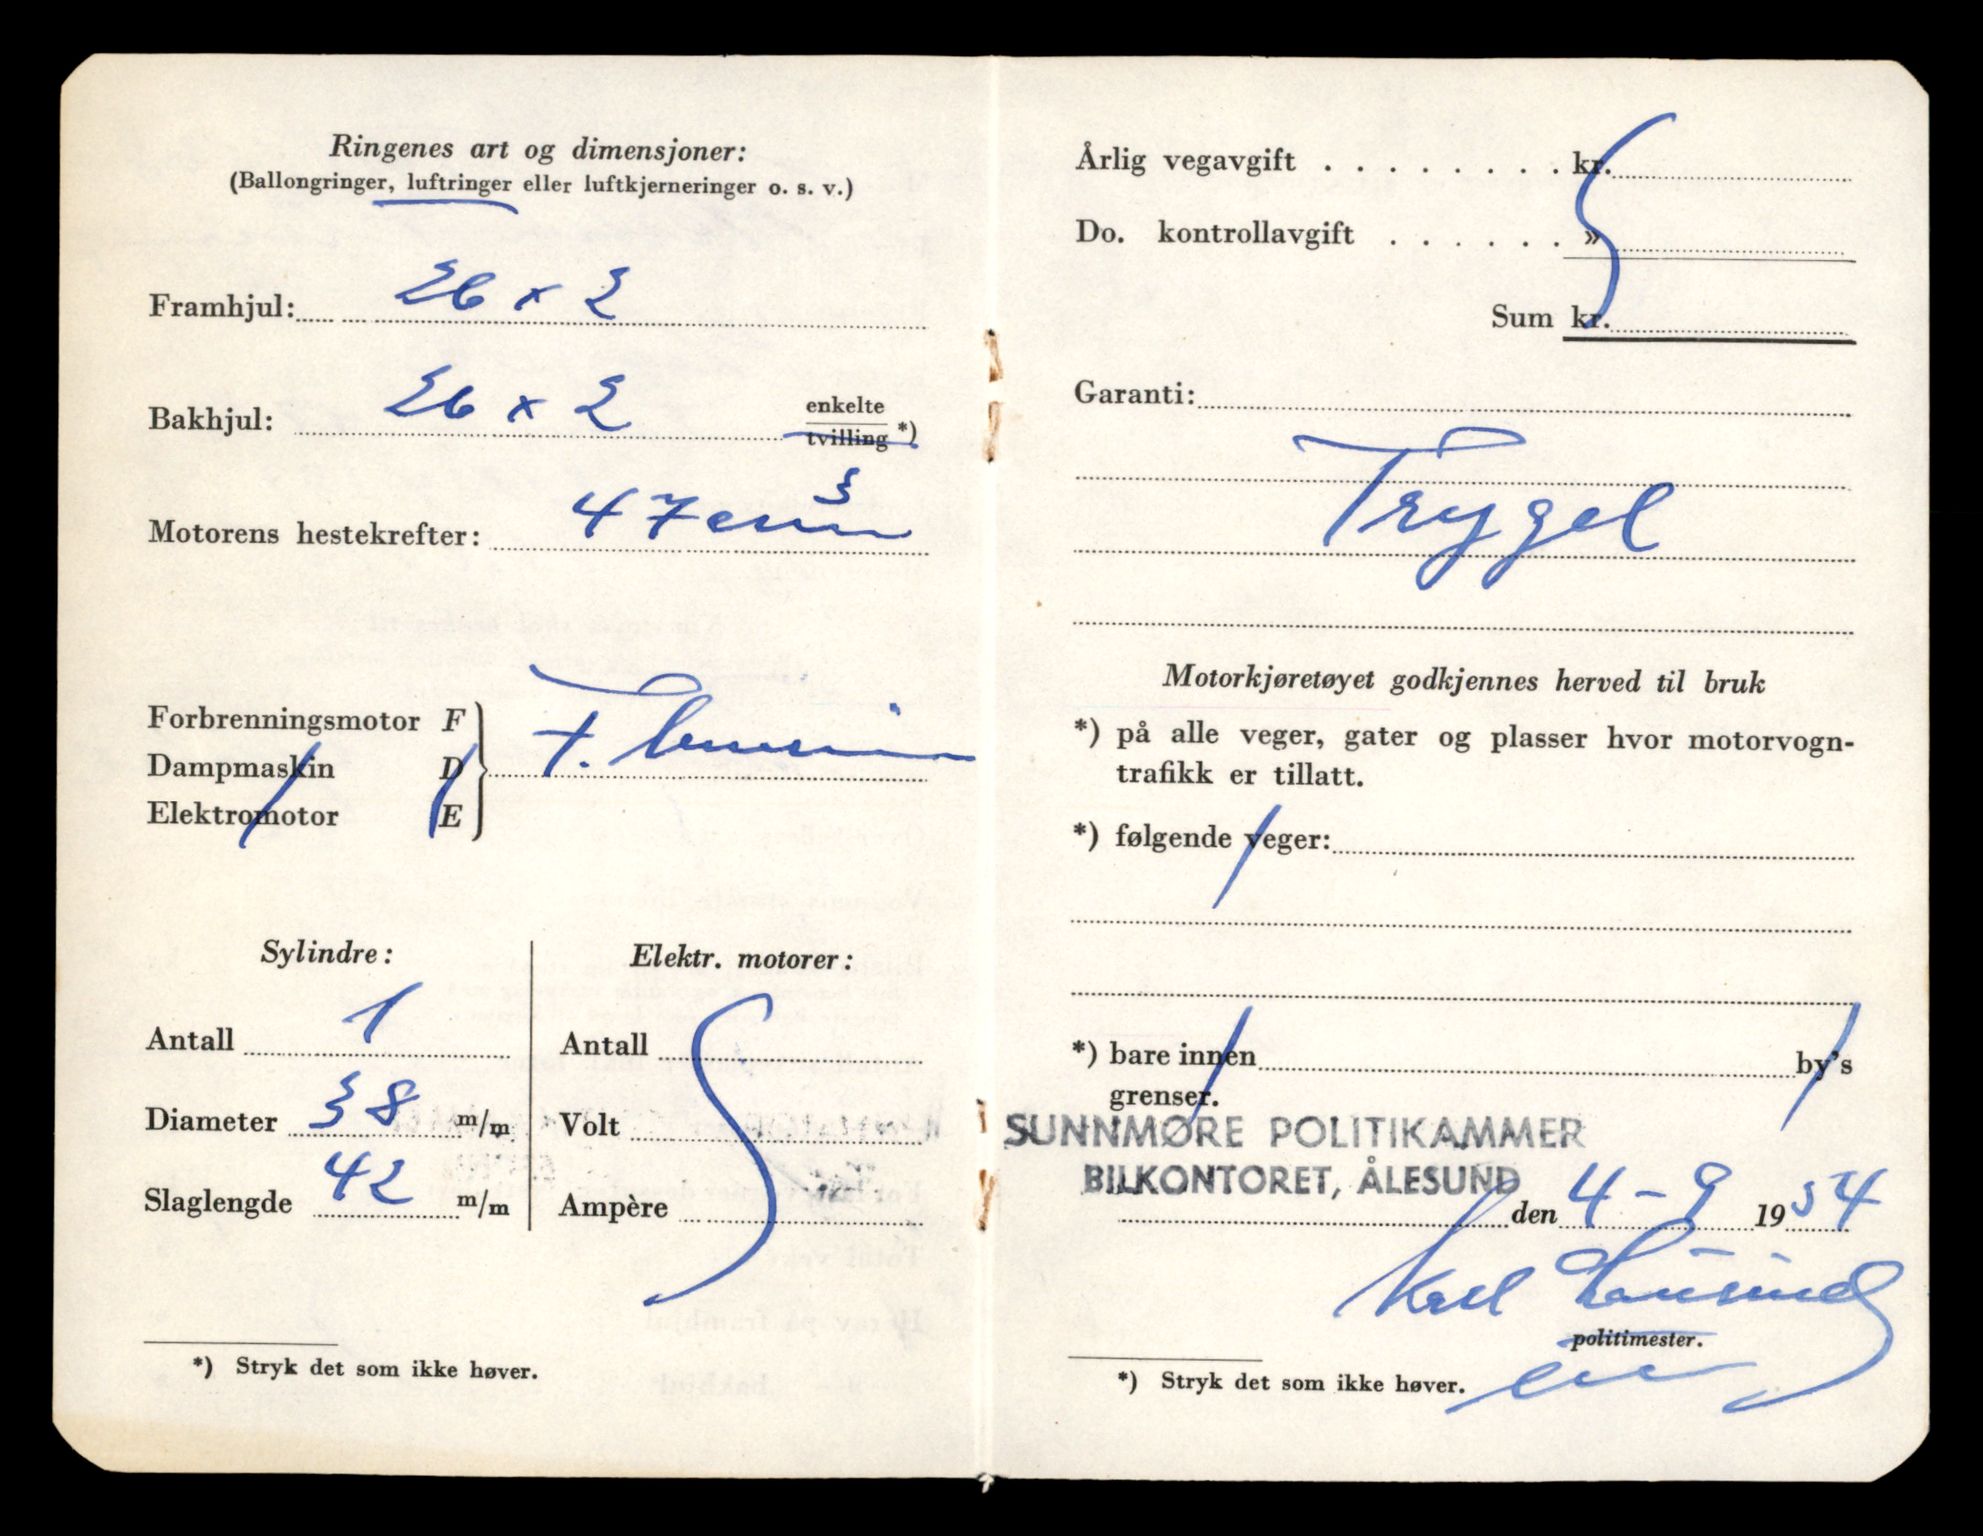 Ringenes art og dimensjoner:
(Ballongringer, luftringer eller luftkjerneringer o. s. v.)
Framhjul: 26 x 2
Bakhjul: 26 x 2 enkelte
tvilling *)
Motorens hestekrefter: 47 cm3
Forbrenningsmotor F
Dampmaskin D
Elektromotor E
F.
Sylindre:
Antall 1
Diameter 38 m/m
Slaglengde 42 m/m
Elektr. motorer:
Antall
Volt
Ampère
*) Stryk det som ikke høver.
Årlig vegavgift . . . . . . . . kr.
Do. kontrollavgift . . . . . . »
Sum kr.
Garanti:
Trygd
Motorkjøretøyet godkjennes herved til bruk
*) på alle veger, gater og plasser hvor motorvogn-
trafikk er tillatt.
*) følgende veger:
*) bare innen by's
grenser.
SUNNMØRE POLITIKAMMER
BILKONTORET, ÅLESUND
den 4-9 1954
Karl
politimester.
*) Stryk det som ikke høver.